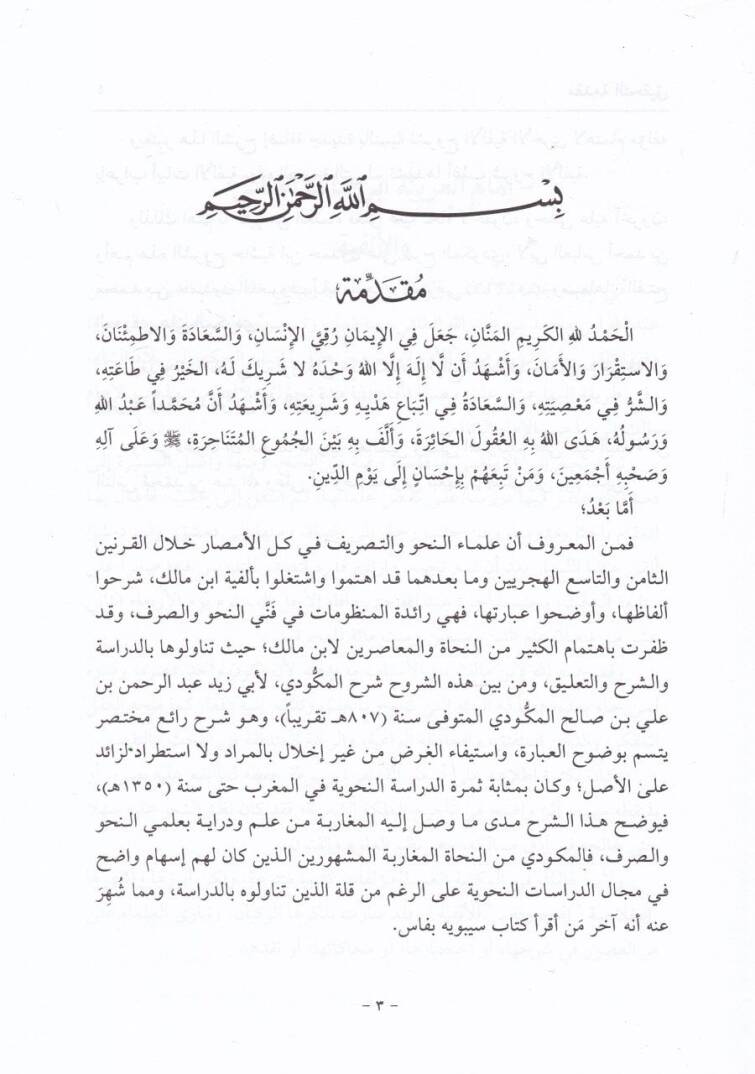 بِسْمِ اللَّهِ الرَّحْمَٰنِ الرَّحِيمِ
مُقَدِّمَةٌ
الْحَمْدُ للهِ الكَرِيمِ المَنَّانِ، جَعَلَ فِي الإِيمَانِ رُقِيَّ الإِنْسَانِ، وَالسَّعَادَةَ وَالاطْمِئْنَانَ،
وَالاسْتِقْرَارَ وَالأَمَانَ، وَأَشْهَدُ أَن لَّا إِلَهَ إِلَّا اللهُ وَحْدَهُ لا شَرِيكَ لَهُ، الخَيْرُ فِي طَاعَتِهِ،
وَالشَّرُّ فِي مَعْصِيَتِهِ، وَالسَّعَادَةُ فِي اتِّبَاعِ هَدْيِهِ وَشَرِيعَتِهِ، وَأَشْهَدُ أَنَّ مُحَمَّداً عَبْدُ اللهِ
وَرَسُولُهُ، هَدَى اللهُ بِهِ العُقُولَ الحَائِرَةَ، وَأَلَّفَ بِهِ بَيْنَ الجُمُوعِ المُتَنَاحِرَةِ، ﷺ وَعَلَى آلِهِ
وَصَحْبِهِ أَجْمَعِينَ، وَمَنْ تَبِعَهُمْ بِإِحْسَانٍ إِلَى يَوْمِ الدِّينِ.
أَمَّا بَعْدُ؛
فمـن المعـروف أن علمـاء النحـو والتـصريف فـي كـل الأمـصار خـلال القـرنين
الثامن والتاسع الهجريين وما بعدهما قد اهتموا واشتغلوا بألفية ابن مالك، شرحوا
ألفاظها، وأوضحوا عبارتها، فهي رائدة المنظومات في فَنَّي النحو والصرف، وقد
ظفرت باهتمام الكثير من النحاة والمعاصرين لابن مالك؛ حيث تناولوها بالدراسة
والشرح والتعليق، ومن بين هذه الشروح شرح المكُّودي، لأبي زيد عبد الرحمن بن
علي بن صالح المكُّودي المتوفى سنة (٨٠٧هـ تقريباً)، وهو شرح رائع مختصر
يتسم بوضوح العبارة، واستيفاء الغرض من غير إخلال بالمراد ولا استطراد لزائد
على الأصل؛ وكان بمثابة ثمرة الدراسة النحوية في المغرب حتى سنة (١٣٥٠هـ)،
فيوضح هذا الشرح مدى ما وصل إليه المغاربة من علم ودراية بعلمي النحو
والصرف، فالمكودي من النحاة المغاربة المشهورين الذين كان لهم إسهام واضح
في مجال الدراسات النحوية على الرغم من قلة الذين تناولوه بالدراسة، ومما شُهِرَ
عنه أنه آخر مَن أقرأ كتاب سيبويه بفاس.
- ٣ -